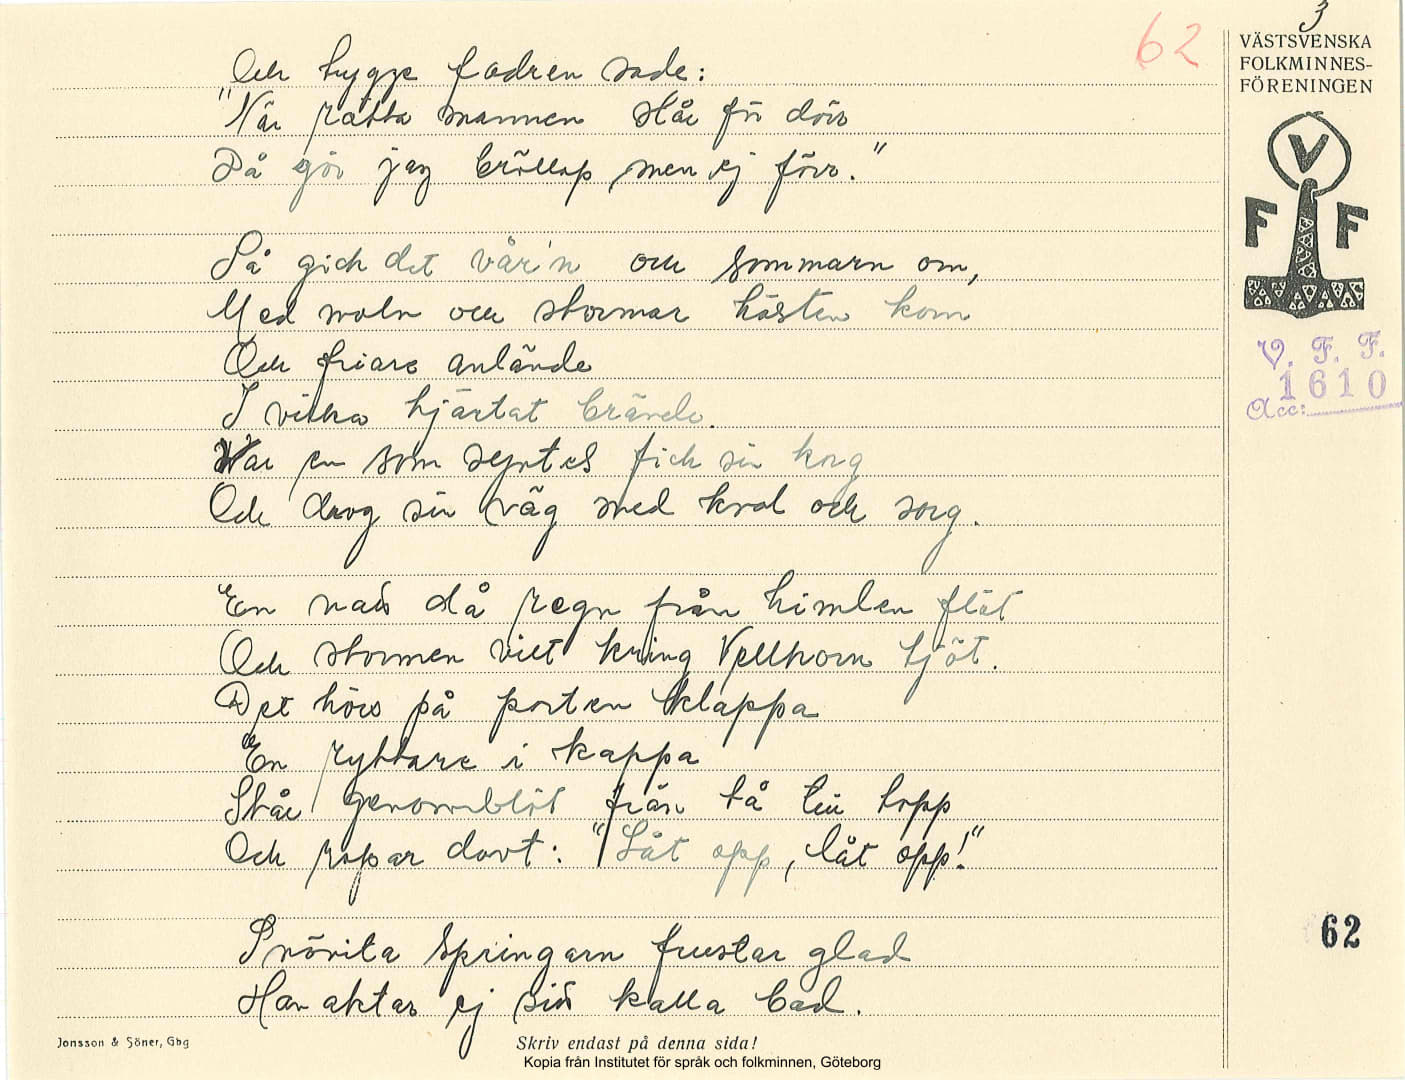 3
62
VÄSTSVENSKA
FOLKMINNES-
FÖRENINGEN
V
F F
V. F. F.
1610
Acc:
Och trygge fadren sade:
"När rätta mannen står för dörr
Då gör jag bröllop, men ej förr."
Så gick det vår'n och sommarn om,
Med moln och stormar hösten kom
Och friare anlände
I vilka hjärtat brände.
War en som syntes fick sin korg
Och drog sin väg med kval och sorg.
En natt då regn från himlen flöt
Och stormen vilt kring Vellhorn tjöt.
Det hörs på porten klappa
En ryttare i kappa
Står genomblöt från tå till topp
Och ropar dovt: "Låt opp, låt opp!"
Snövita springarn frustar glad
Han aktar ej sitt kalla bad.
62
Jonsson & Söner, Gbg
Skriv endast på denna sida!
Kopia från Institutet för språk och folkminnen, Göteborg